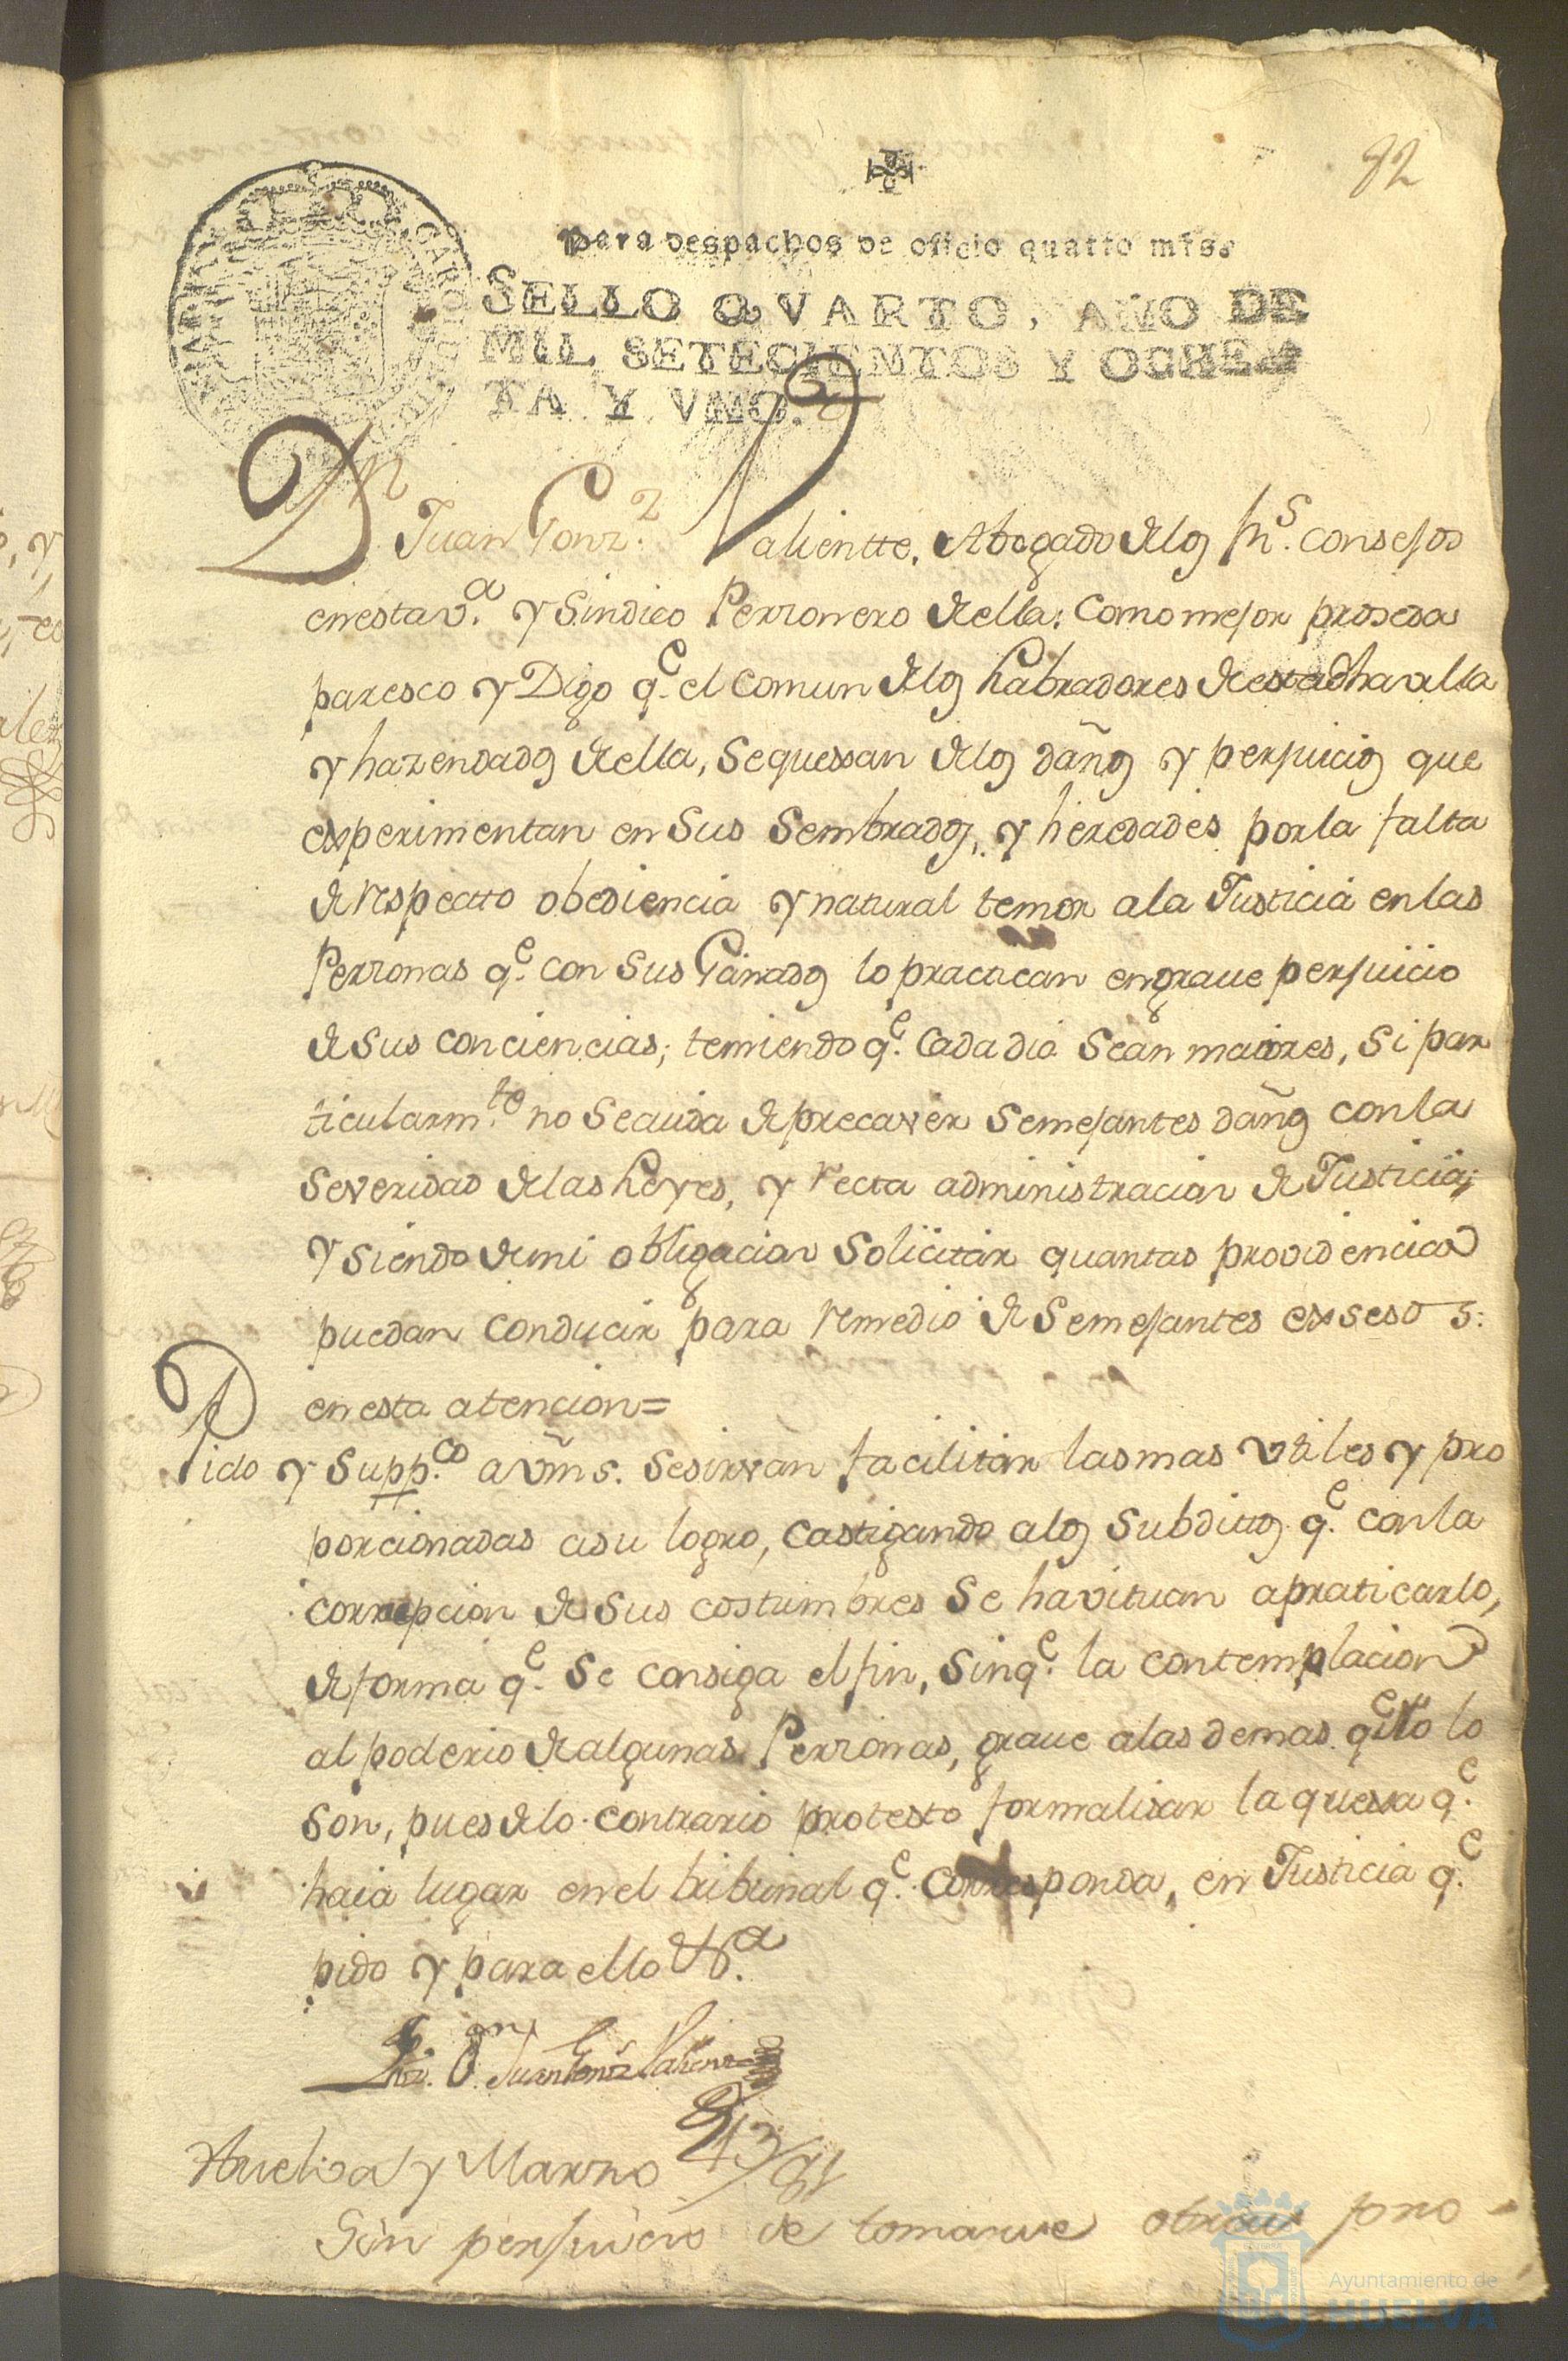 82
Para despachos de oficio quatro mrs.
SELLO QVARTO, AÑO DE
MIL SETECIENTOS Y OCHEN
TA Y VNO.
Dn Juan Gonz.z Valientte, Abogado de los Rs. consejos
en esta v.a y Sindico Perzonero de ella: como mejor proseda
paresco y Digo q.e el comun de los Labradores de esta dha villa
y hazendados de ella, se quexxan de los daños y perjuicios que
experimentan en sus sembrados, y heredades por la falta
de respecto obediencia y natural temor a la Justicia en las
Perzonas q.e con sus Ganados lo practican en graue perjuicio
de sus conciencias; temiendo q.e cada dia sean maiores, si par
ticularm.te no se cuida de precaver semejantes daños con la
severidad de las Leyes, y recta administracion de Justicia;
y siendo de mi obligacion solicitar quantas providencias
puedan conducir para remedio de semejantes exsesos:
en esta atencion=
Pido y Supp.co a vms. se sirvan facilitar las mas vtiles y pro
porcionadas a su logro, castigando a los subditos q.e con la
corrupcion de sus costumbres se havituan a praticarlo,
de forma q.e se consiga el fin, sin q.e la contemplacion
al poderio de algunas Perzonas, graue a las demas q.e no lo
son, pues de lo contrario protesto formalisar la quexa q.e
haia lugar en el tribunal q.e corresponda, en Justicia q.e
pido y para ello &.a
Liz. Dn Juan Gonz Valiente
Huelva y Marzo 13/81
Sin perjuicio de tomarse otras pro-
Ayuntamiento de
HUELVA